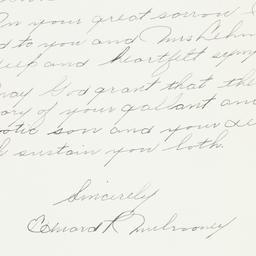 In your great sorrow I
to you and Mrs Lehm
deep and heartfelt symp
may God grant that the
ory of your gallant and
otic son and your
sustain you both.
Sincerely
Edward P. Mulrooney